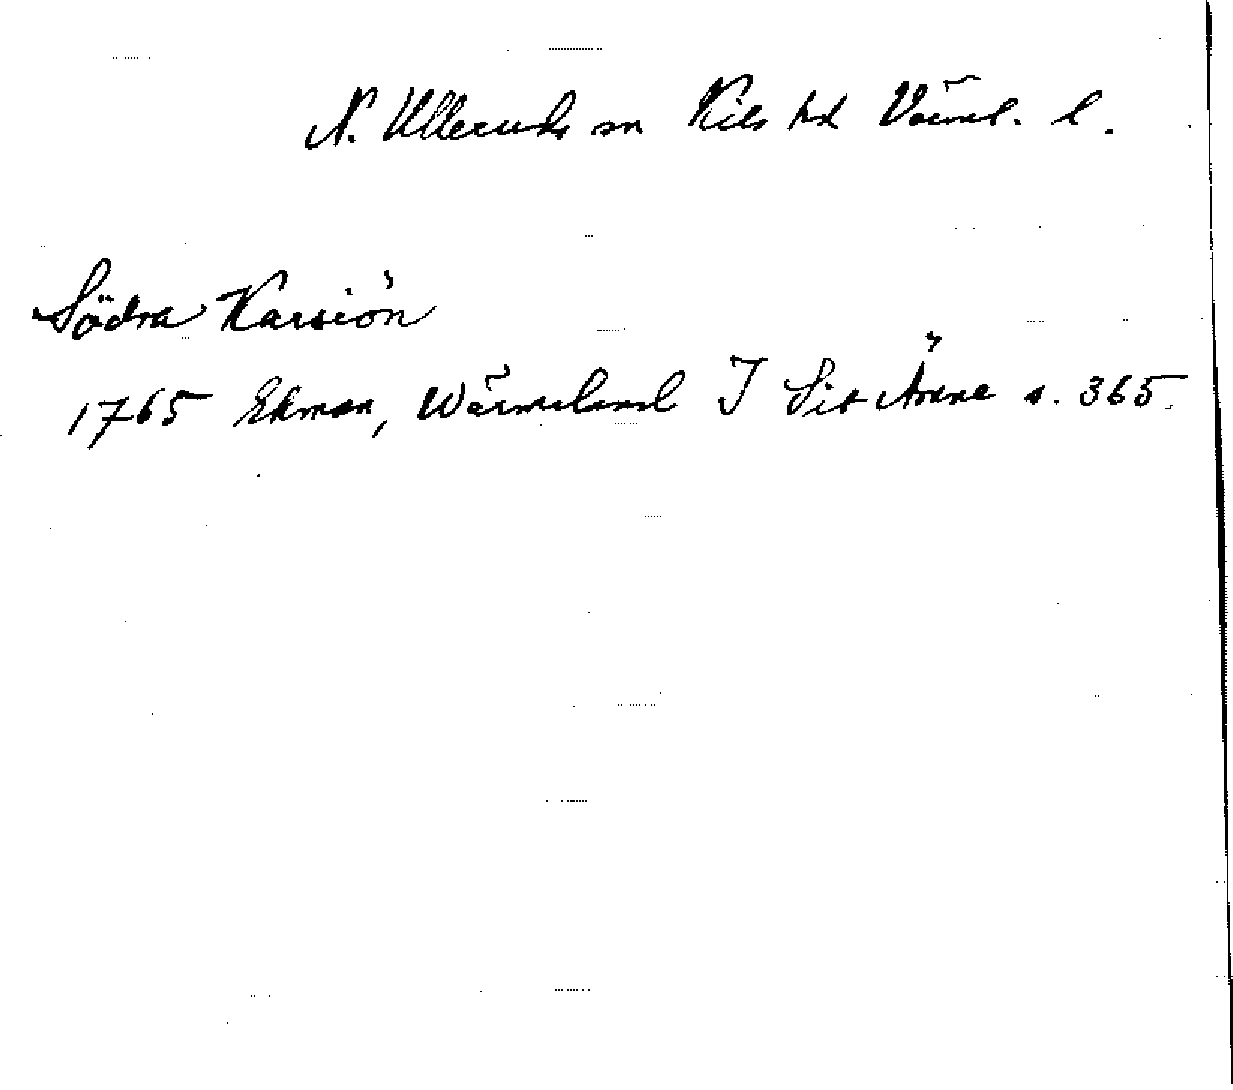 N. Ulleruds sn Kils hd Värml. l.
Södra Karsiön
1765 Ekman, Wärmeland I Sit Ämne s. 365